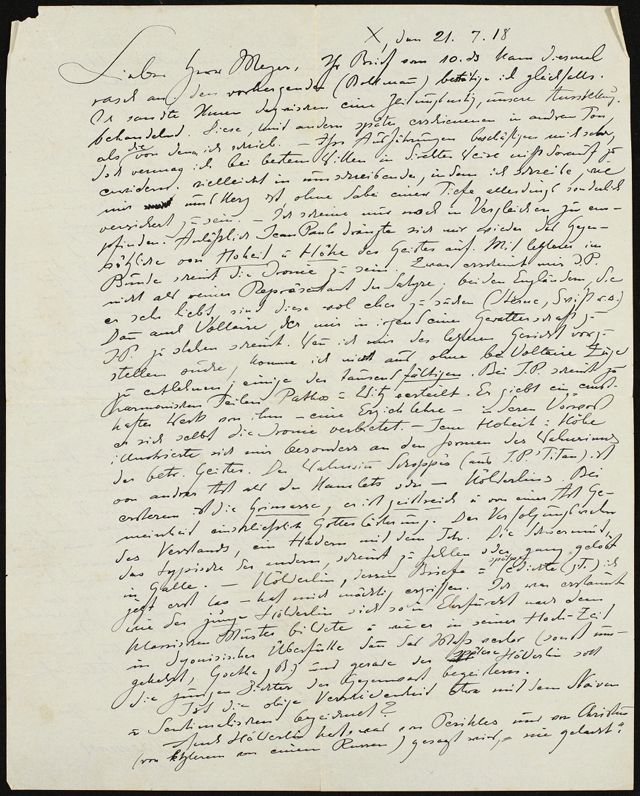 X, den 21. 7. 18
Lieber Herr Meyer, Ihr Brief vom 10. ds kam diesmal
rasch an, den vorhergenden (Boltmann) bestätige ich gleichfalls.
Ich sandte Ihnen inzwischen eine Zeitung, unsere Ausstellung
behandelnd. Diese, und andern später erschienenen in andrem Ton,
als die von denen ich schrieb. — Ihre Ausführungen beschäftigen mich sehr,
doch vermag ich bei bestem Willen in direkter Weise nichts darauf zu
erwidern. vielleicht in umschreibender, indem ich schreibe, wie
mir ums Herz ist ohne dabei einer Tiefe allerdings sonderlich
versichert zu sein. — Ich scheine nur noch in Vergleichen zu em-
pfinden. Anläßlich Jean Pauls drängte sich mir wieder das Gegen-
sätzliche von Hoheit u Höhe des Geistes auf. Mit letzterer im
Bunde scheint die Ironie zu sein. Zwar erscheint mir J.P.
nicht als reiner Repräsentant der Satyre; bei den Engländern, die
er sehr liebt, sind diese wohl eher zu suchen (Sterne, Swift u.a.)
Dann auch Voltaire, der mir in irgend einer Gevatterschaft zu
J.P. zu stehen scheint. Wenn ich mir des letztern Gesicht vorzu-
stellen suche, komme ich nicht aus ohne bei Voltaire Züge
zu entlehnen; einige der tausendfältigen. Bei J.P. scheint zu
harmonischen Teilen Pathos u Witz verteilt. Es giebt ein ernst-
haftes Werk von ihm — eine Erziehlehre — in deren Vorwort
er sich selbst die Ironie verbietet. — Jene Hoheit u Höhe
illustrierte sich mir besonders an den Formen des Wahnsinns
der betr. Geister. Der Wahnsinn Schoppes (aus J.P. Titan) ist
von andrer Art als der Hamlets oder — Hölderlins. Bei
ersterem ist die Grimasse, er ist geistreich u von einer Art Ge-
meinheit einschließlich Gotteslästerung. Der Verfolgungswahn
des Verstands, ein Hadern mit dem Ich. Die Schwermut,
das Typische der andern, scheint zu fehlen oder ging gelöst
in Galle. — Hölderlin, dessen Briefe u Gedichte (z.T.) ich
jetzt erst las — hat mich mächtig ergriffen. Ich war erstaunt
wie der junge Hölderlin sich voll Ehrfurcht nach dem
klassischen Muster bildete u wie er in seiner Hoch-Zeit
in dyonisischer Überfülle dann das Maß verlor (sonst um-
gekehrt, Goethe z.B.) und gerade der spätere Hölderlin soll
die jungen Dichter der Gegenwart begeistern.
Ist die obige Verschiedenheit etwa mit dem Naiven
u Sentimentalischen bezeichnet?
Auch Hölderlin hat, was von Perikles und von Christus
(von letzterem von einem Russen) gesagt wird, — nie gelacht?